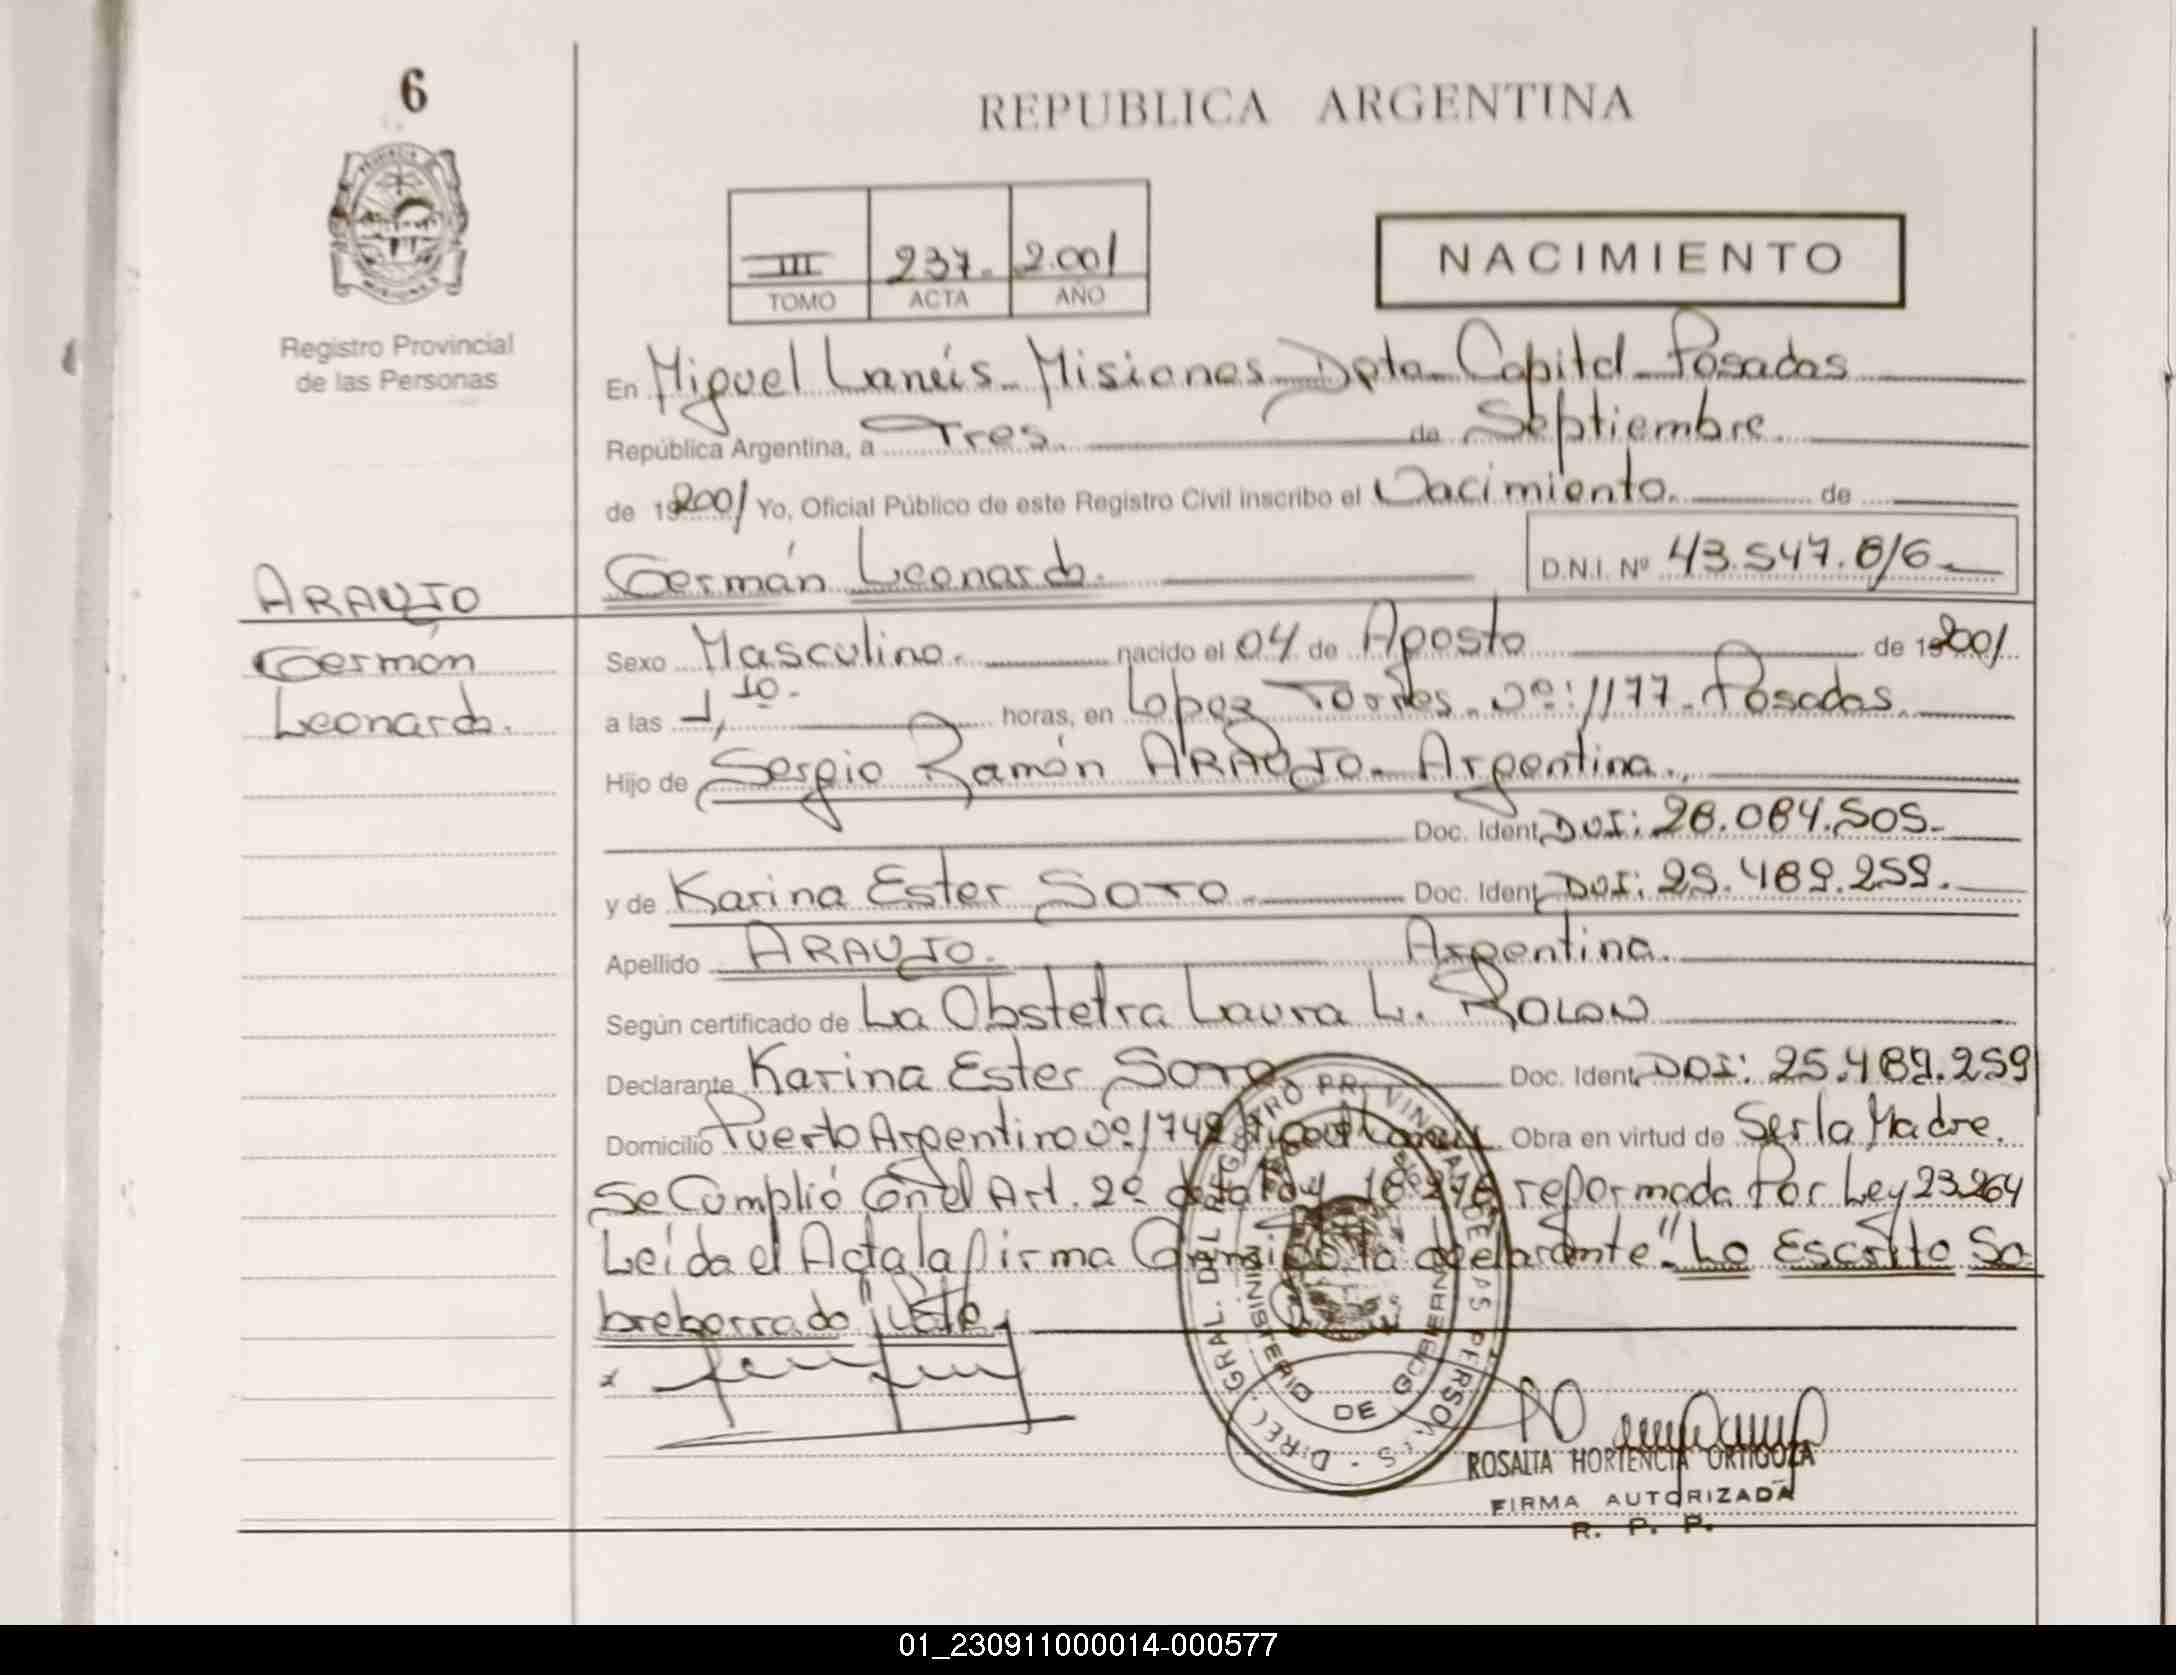 6
REPUBLICA ARGENTINA
III 237. 2.001
TOMO ACTA AÑO
NACIMIENTO
Registro Provincial
de las Personas
En Miguel Lanús. Misiones Dpto. Capital Posadas
República Argentina, a Tres. de Septiembre.
de 192001 Yo, Oficial Público de este Registro Civil inscribo el Nacimiento. de
Germán Leonardo. D.N.I. Nº 43.547.816
ARAUJO
Germán
Leonardo.
Sexo Masculino. nacido el 04 de Agosto de 192001
a las 1,10. horas, en Lopez Torres. Nº: 1177. Posadas.
Hijo de Sergio Ramón ARAUJO. Argentina.
Doc. Ident. DNI: 28.084.505.
y de Karina Ester SOTO Doc. Ident. DNI: 25.489.259.
Apellido ARAUJO. Argentina.
Según certificado de La Obstetra Laura L. ROLON
Declarante Karina Ester SOTO Doc. Ident. DNI: 25.489.259
Domicilio Puerto Argentino Nº 1748 Miguel Lanús Obra en virtud de Ser la Madre.
Se Cumplió Con el Art. 2º de la ley 18.248 reformada Por Ley 23.264
Leída el Acta la firma Conmigo la declarante". Lo Escrito So
breborrado" Vale.
DIREC. GRAL. DEL REGISTRO PROVINCIAL DE LAS PERSONAS
MINISTERIO DE GOBIERNO
ROSALIA HORTENCIA ORTIGOZA
FIRMA AUTORIZADA
R. P. P.
01_230911000014-000577